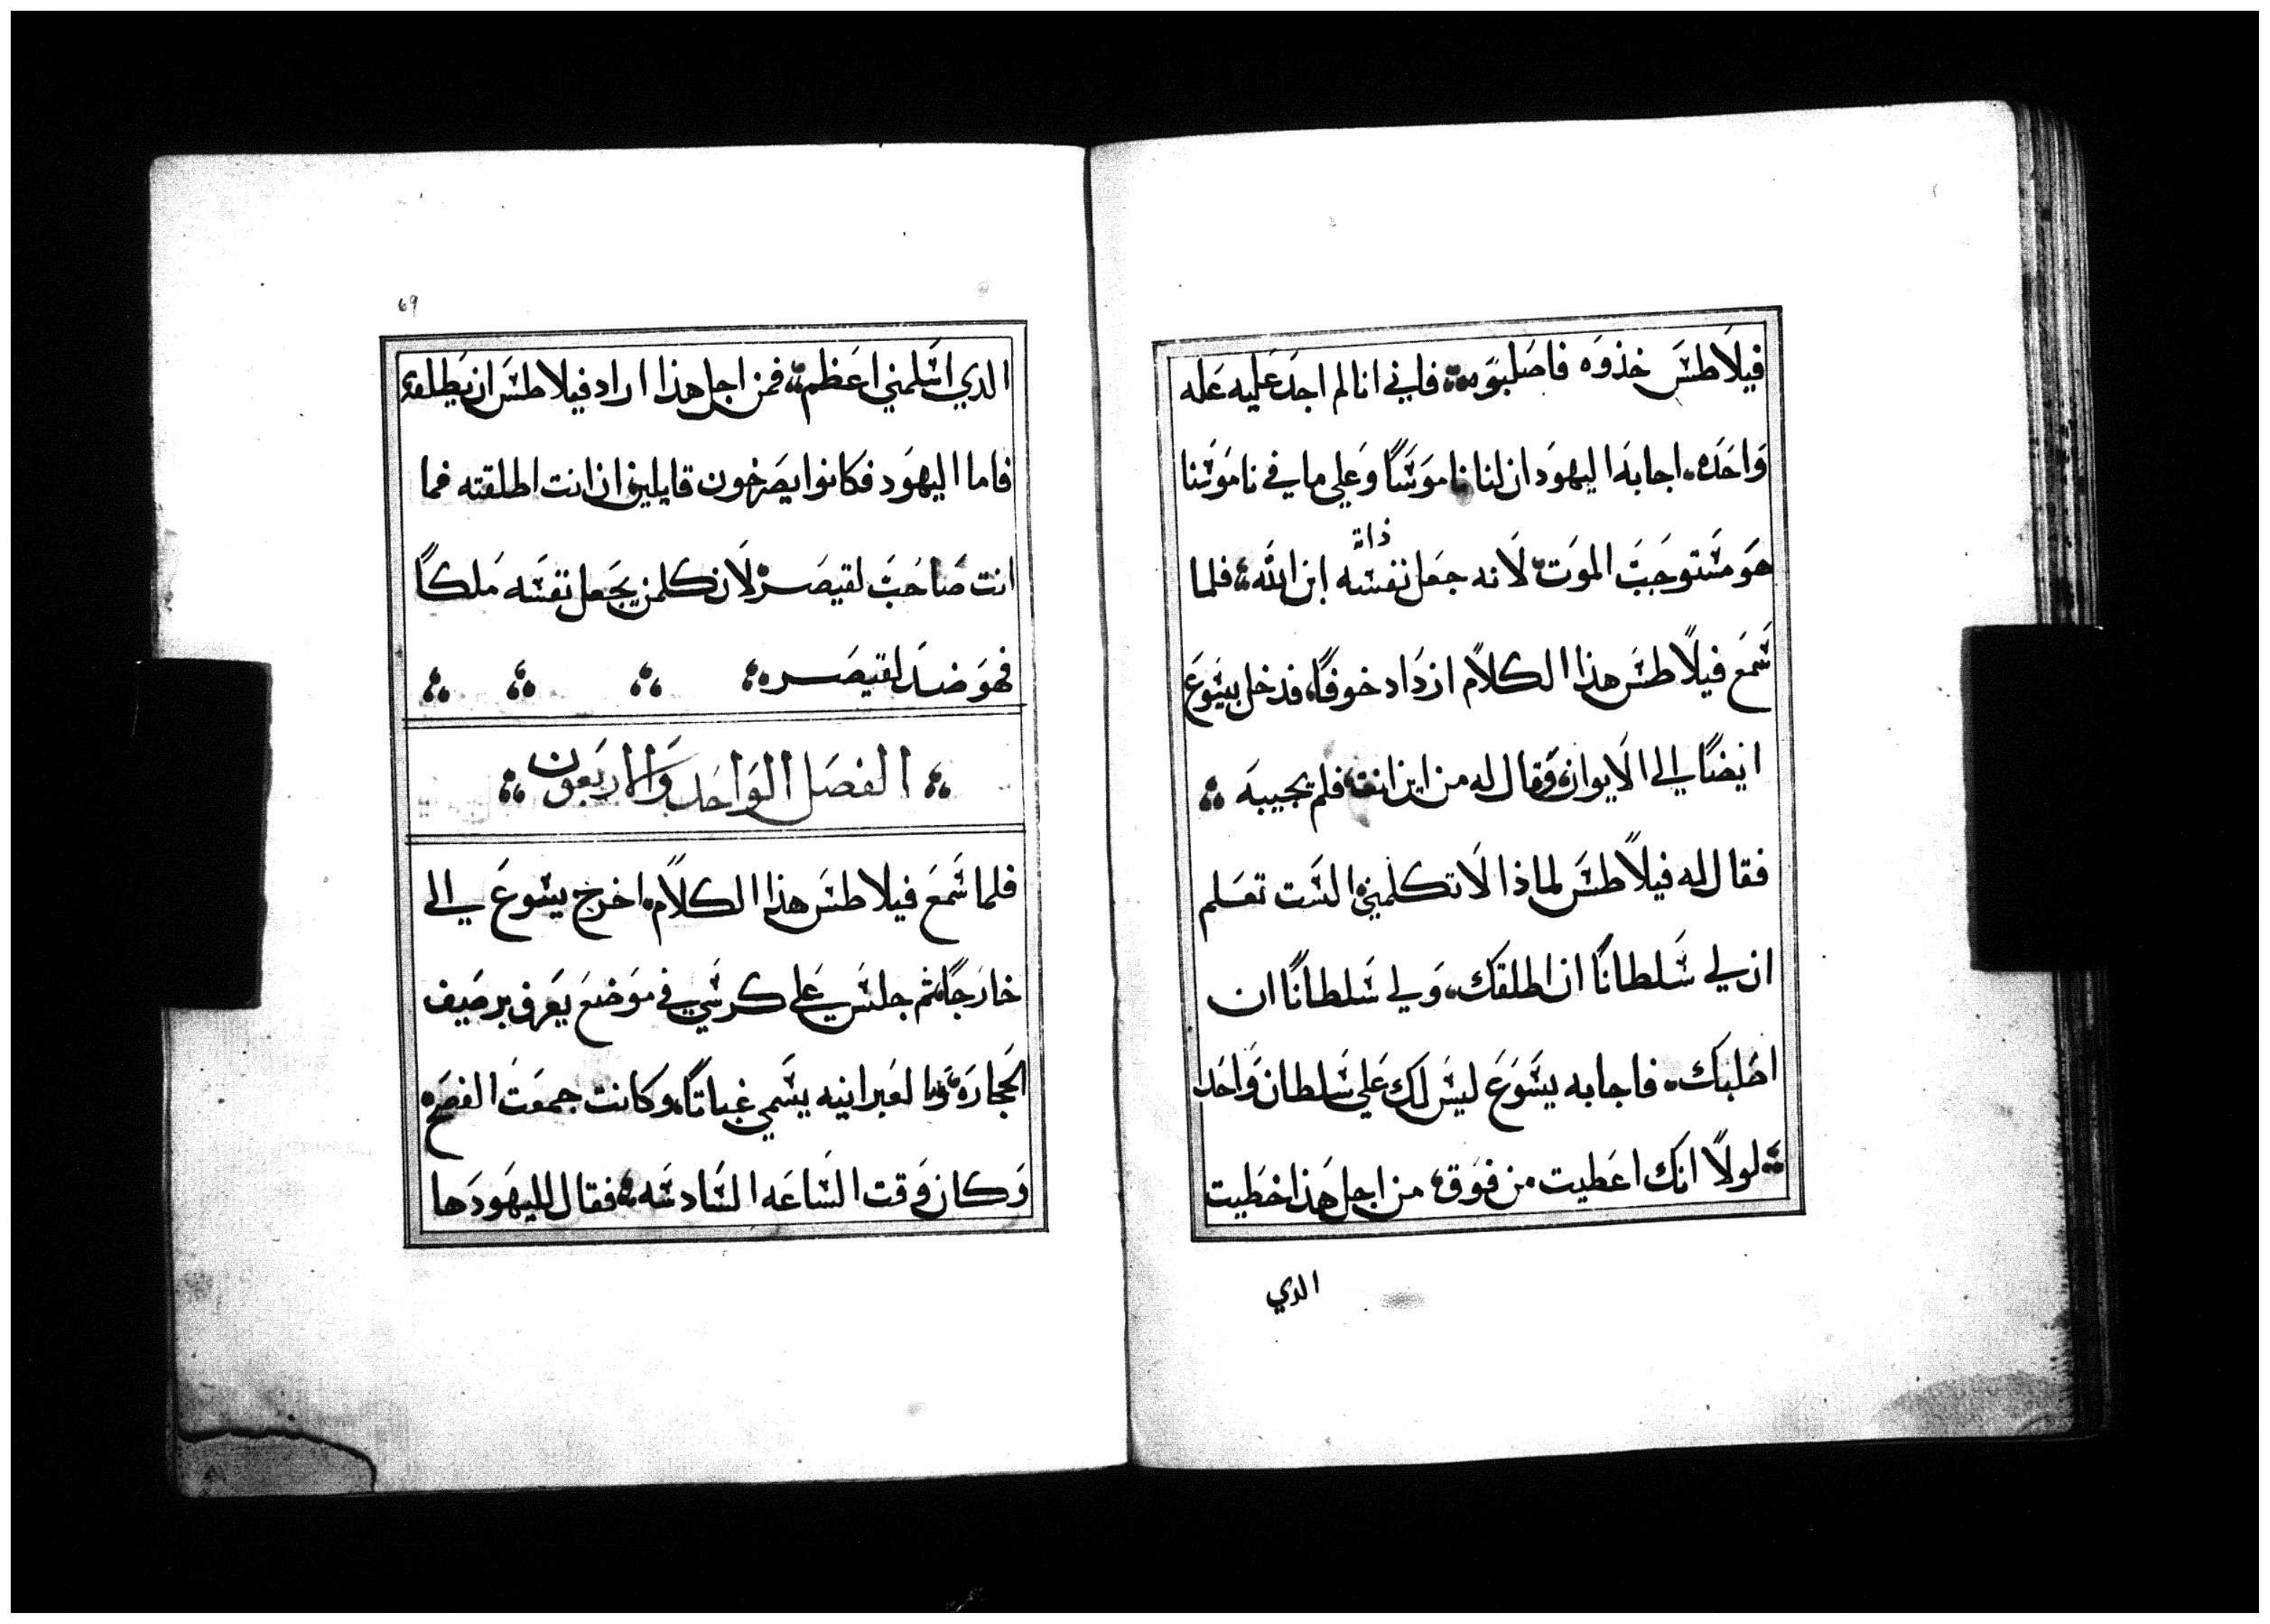 فيلاطس خذوه فاصلبوه فاني انا لم اجد عليه عله
واحده اجابه اليهود ان لنا ناموسًا وعلي ما في ناموسنا
ذاته
هو مستوجب الموت لانه جعل نفسه ابن الله فلما
سمع فيلاطس هذا الكلام ازداد خوفًا فدخل بيسوع
ايضًا الي الايوان وقال له من اين انت فلم يجيبه
فقال له فيلاطس لماذا لا تكلمني الست تعلم
ان لي سلطانًا ان اطلقك ولي سلطانًا ان
اصلبك فاجابه يسوع ليس لك علي سلطان واحد
لولا انك اعطيت من فوق من اجل هذا خطيت
الدي
69
الدي اسلمني اعظم فمن اجل هذا اراد فيلاطس ان يطلقه
فاما اليهود فكانوا يصرخون قايلين ان انت اطلقته فما
انت صاحب لقيصر لان كلمن يجعل نفسه ملكًا
فهو ضد لقيصر
الفصل الواحد والاربعون
فلما سمع فيلاطس هذا الكلام اخرج يسوع الي
خارجًا ثم جلس علي كرسي في موضع يعرف برصيف
الحجاره وبالعبرانيه يسمي غباتا وكانت جمعت الفصح
وكان وقت الساعه السادسه فقال لليهود ها